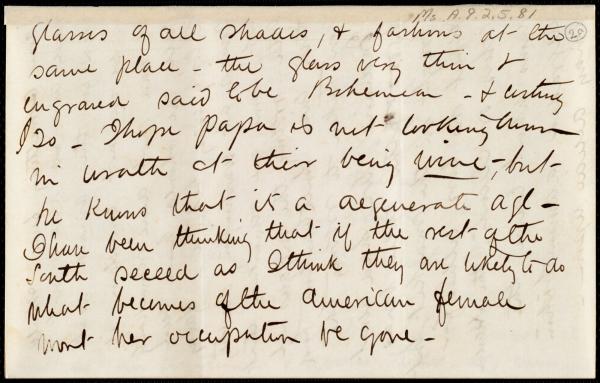 Ms. A.9.2.5.81
(20)
glasses of all shades, & fashions at the
same place - the glass very thin &
engraved said to be Bohemian - & costing
$20 - I hope papa is not looking down
in wrath at their being wine -, but
he knows that it is a degenerate age -
I have been thinking that if the rest of the
South seceed as I think they are likely to do
what becomes of the American female
wont her occupation be gone -